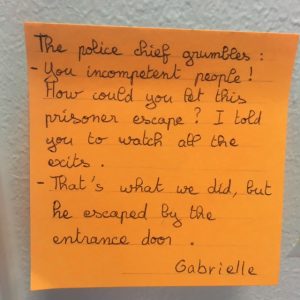 The police chief grumbles :
- You incompetent people !
How could you let this
prisoner escape ? I told
you to watch all the
exits .
- That's what we did, but
he escaped by the
entrance door .
Gabrielle